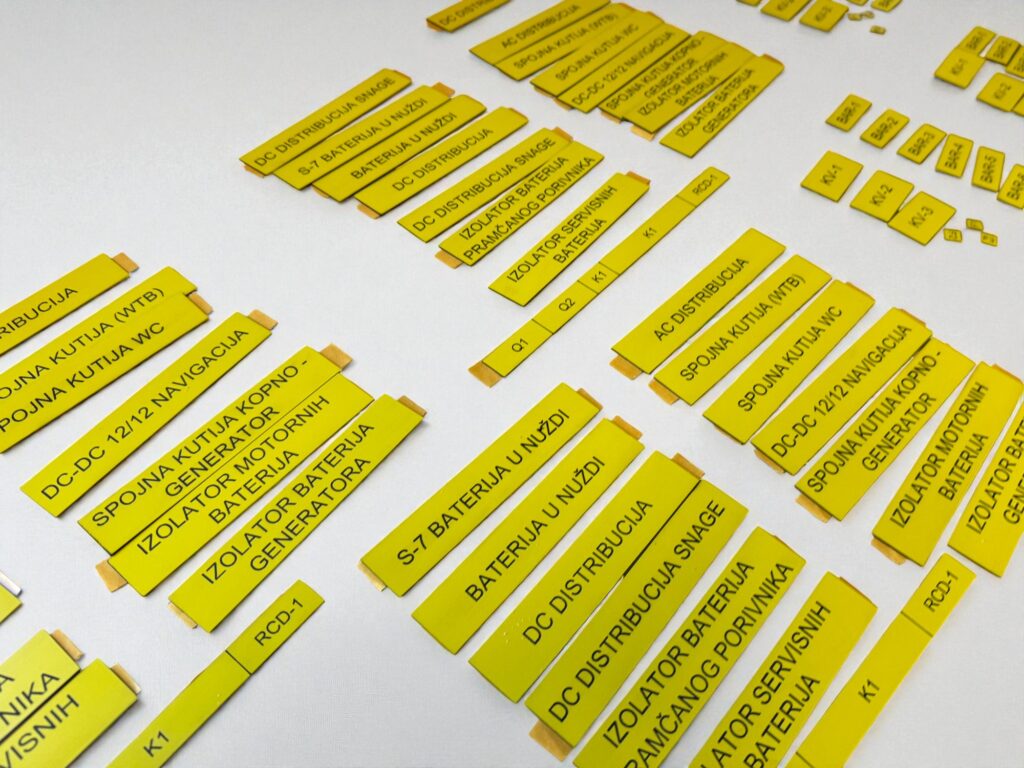 DC DISTRIBUCIJA
AC DISTRIBUCIJA
SPOJNA KUTIJA (WTB)
SPOJNA KUTIJA WC
DC-DC 12/12 NAVIGACIJA
SPOJNA KUTIJA KOPNO -
GENERATOR
IZOLATOR MOTORNIH
BATERIJA
IZOLATOR BATERIJA
GENERATORA
DC DISTRIBUCIJA SNAGE
S-7 BATERIJA U NUŽDI
BATERIJA U NUŽDI
DC DISTRIBUCIJA
DC DISTRIBUCIJA SNAGE
IZOLATOR BATERIJA
PRAMČANOG PORIVNIKA
IZOLATOR SERVISNIH
BATERIJA
RCD-1
K1
K1
Q2
Q1
BAR-1
BAR-2
BAR-3
BAR-4
BAR-5
BAR-6
KV-1
KV-2
KV-3
BAR-1
KV-1
KV-2
RIBUCIJA
OJNA KUTIJA (WTB)
POJNA KUTIJA WC
DC-DC 12/12 NAVIGACIJA
SPOJNA KUTIJA KOPNO -
GENERATOR
IZOLATOR MOTORNIH
BATERIJA
IZOLATOR BATERIJA
GENERATORA
RCD-1
K1
NIKA
VISNIH
AC DISTRIBUCIJA
SPOJNA KUTIJA (WTB)
SPOJNA KUTIJA WC
DC-DC 12/12 NAVIGACIJA
SPOJNA KUTIJA KOPNO -
GENERATOR
IZOLATOR MOTORNIH
BATERIJA
IZOLATOR BATE
GENERATO
S-7 BATERIJA U NUŽDI
BATERIJA U NUŽDI
DC DISTRIBUCIJA
DC DISTRIBUCIJA SNAGE
IZOLATOR BATERIJA
RAMČANOG PORIVNIKA
LATOR SERVISNIH
BATERIJA
RCD-1
K1